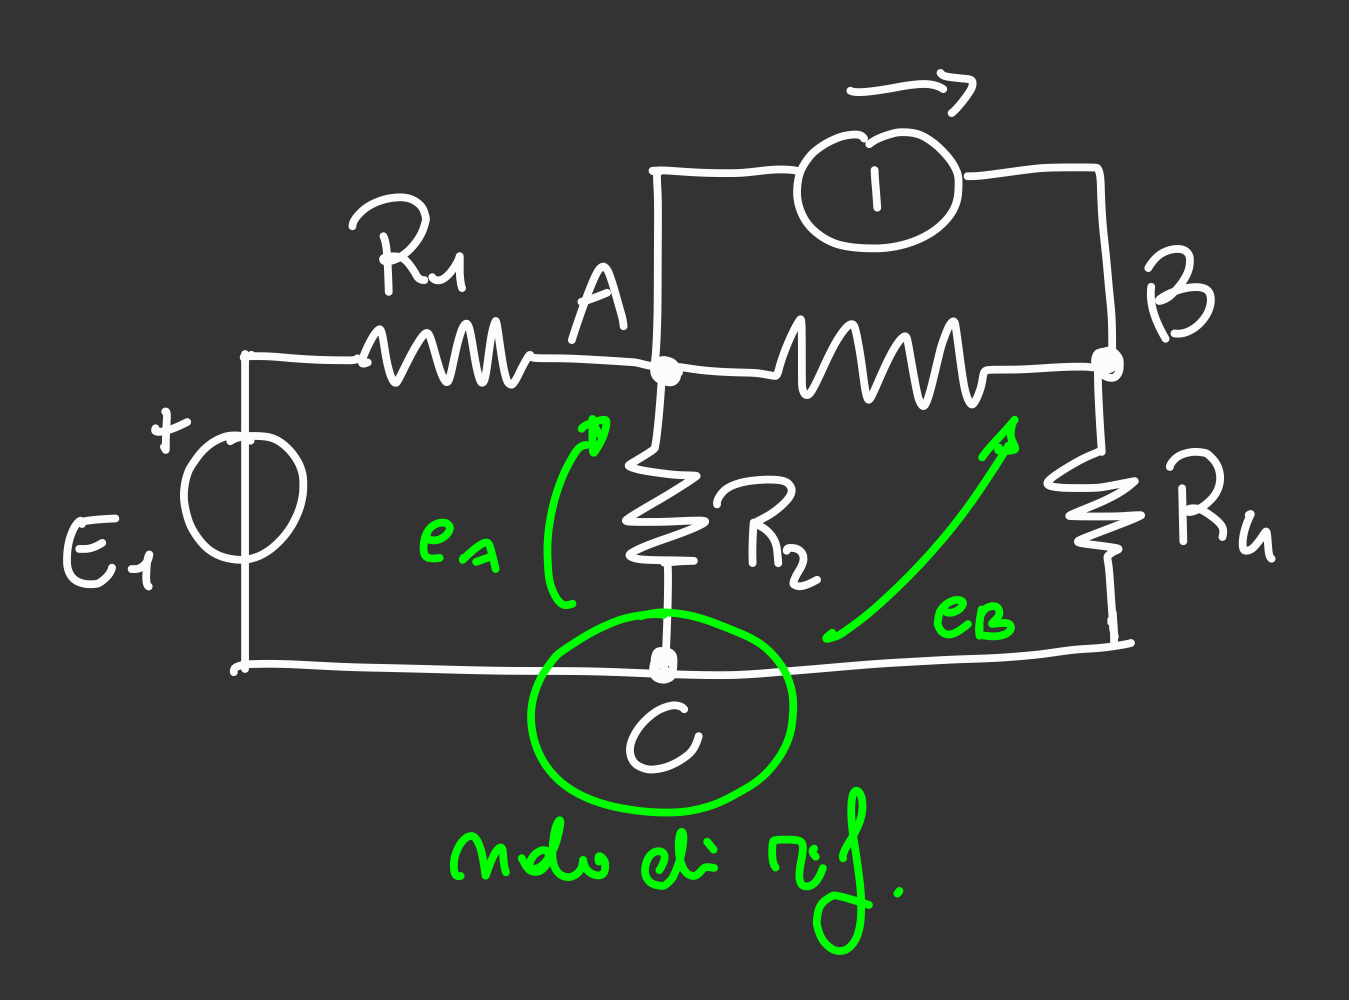 I
R1
A
B
+
E1
eA
R2
R4
eB
C
nodo di rif.